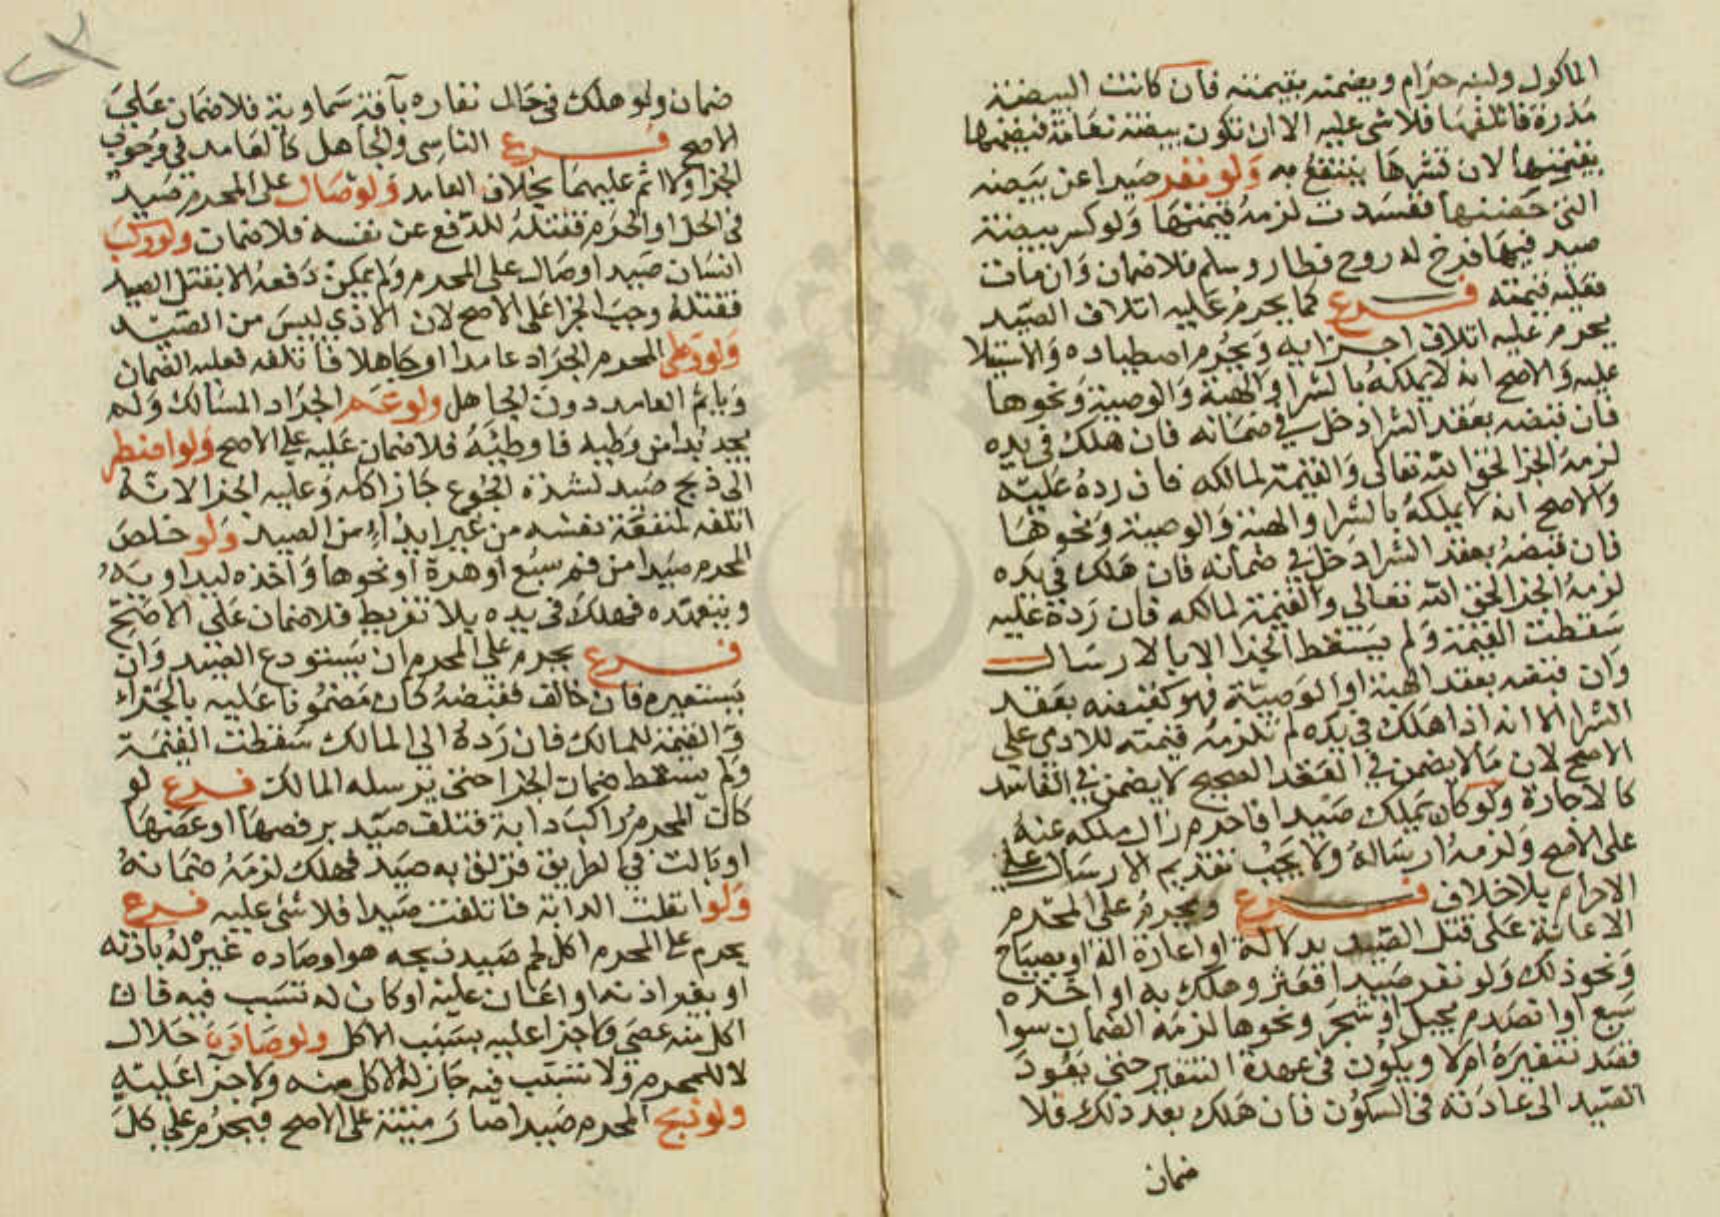 الماكول ولبنه حرام ويضمنه بقيمته فان كانت البيضة
مذرة فاتلفها فلا شى عليه الا ان تكون بيضة نعامة فيضمنها
بقيمتها لان قشرها ينتفع به ولو نفر صيدا عن بيضه
التى حضنها ففسدت لزمه قيمتها ولو كسر بيضة
صيد فيها فرخ له روح فطار وسلم فلا ضمان وان مات
فعليه قيمته فرع كما يحرم عليه اتلاف الصيد
يحرم عليه اتلاف اجزايه ويحرم اصطياده والاستيلا
عليه والاصح انه لا يملكه بالشرا والهبة والوصية ونحوها
فان قبضه بعقد الشرا دخل في ضمانه فان هلك في يده
لزمه الجزا لحق الله تعالى والقيمة لمالكه فان رده عليه
والاصح انه لا يملكه بالشرا والهبة والوصية ونحوها
فان قبضه بعقد الشرا دخل في ضمانه فان هلك في يده
لزمه الجزا لحق الله تعالى والقيمة لمالكه فان رده عليه
سقطت القيمة ولم يسقط الجزا الا بالارسال
وان قبضه بعقد الهبة او الوصية فهو كقبضه بعقد
الشرا الا انه اذا هلك في يده لم تلزمه قيمته للادمى على
الاصح لان ما لا يضمن في العقد الصحيح لا يضمن في الفاسد
كالاجارة ولو كان يملك صيدا فاحرم زال ملكه عنه
على الاصح ولزمه ارساله ولا يجب تقديم الارسال على
الاحرام بلا خلاف فرع ويحرم على المحرم
الاعانة على قتل الصيد بدلالة او اعارة الة او بصياح
ونحو ذلك ولو نفر صيدا فعثر وهلك به او اخذه
سبع او انصدم بجبل او شجر ونحوها لزمه الضمان سوا
قصد تنفيره ام لا ويكون في عهدة التنفير حتى يعود
الصيد الى عادته في السكون فان هلك بعد ذلك فلا
ضمان
ضمان ولو هلك في حال نفاره بآفة سماوية فلا ضمان على
الاصح فرع الناسى والجاهل كالعامد في وجوب
الجزا ولا اثم عليهما بخلاف العامد ولو صال على المحرم صيد
في الحل او الحرم فقتله للدفع عن نفسه فلا ضمان ولو ركب
انسان صيدا وصال على المحرم ولم يمكن دفعه الا بقتل الصيد
فقتله وجب الجزا على الاصح لان الاذى ليس من الصيد
ولو وطى المحرم الجراد عامدا او جاهلا فاتلفه فعليه الضمان
وياثم العامد دون الجاهل ولو عم الجراد المسالك ولم
يجد بدا من وطيه فاوطيه فلا ضمان عليه على الاصح ولو اضطر
الى ذبح صيد لشدة الجوع جاز اكله وعليه الجزا لانه
اتلفه لمنفعة نفسه من غير ايذاء من الصيد ولو خلص
المحرم صيدا من فم سبع او هرة او نحوها واخذه ليداويه
ويتعهده فهلك في يده بلا تفريط فلا ضمان على الاصح
فرع يحرم على المحرم ان يستودع الصيد وان
يستعيره فان خالف فقبضه كان مضمونا عليه بالجزاء
والقيمة للمالك فان رده الى المالك سقطت القيمة
ولم يسقط ضمان الجزا حتى يرسله المالك فرع لو
كان المحرم راكب دابة فتلف صيد برفصها او عضها
او بالت في الطريق فزلق به صيد فهلك لزمه ضمانه
ولو انفلتت الدابة فاتلفت صيدا فلا شى عليه فرع
يحرم على المحرم اكل لحم صيد ذبحه هو او صاده غيره له باذنه
او بغير اذنه او اعان عليه او كان له تسبب فيه فان
اكل منه عصى ولا جزا عليه بسبب الاكل ولو صاده حلال
لا للمحرم ولا تسبب فيه جاز له الاكل منه ولا جزا عليه
ولو ذبح المحرم صيدا صار ميتة على الاصح فيحرم على كل